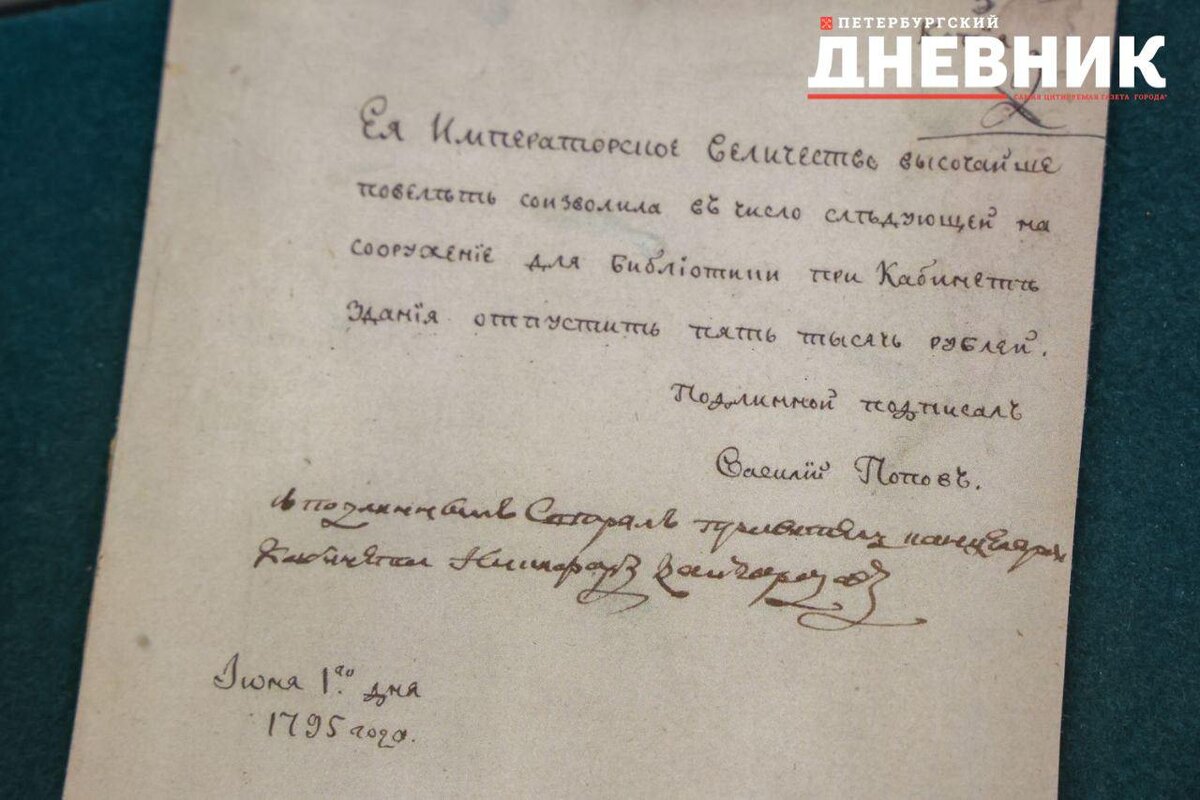 ПЕТЕРБУРГСКИЙ
ДНЕВНИК
САМАЯ ЦИТИРУЕМАЯ ГАЗЕТА ГОРОДА*
Ея Императорское Величество высочайше
повелѣть соизволила въ число слѣдующей на
сооружение для библіотики при Кабинетѣ
Зданія отпустить пять тысячь рублей.
Подлинной подписалъ
Василій Поповъ.
Съ подлиннымъ канцеляріи
Кабинета
Іюня 1.го дня
1795 года.